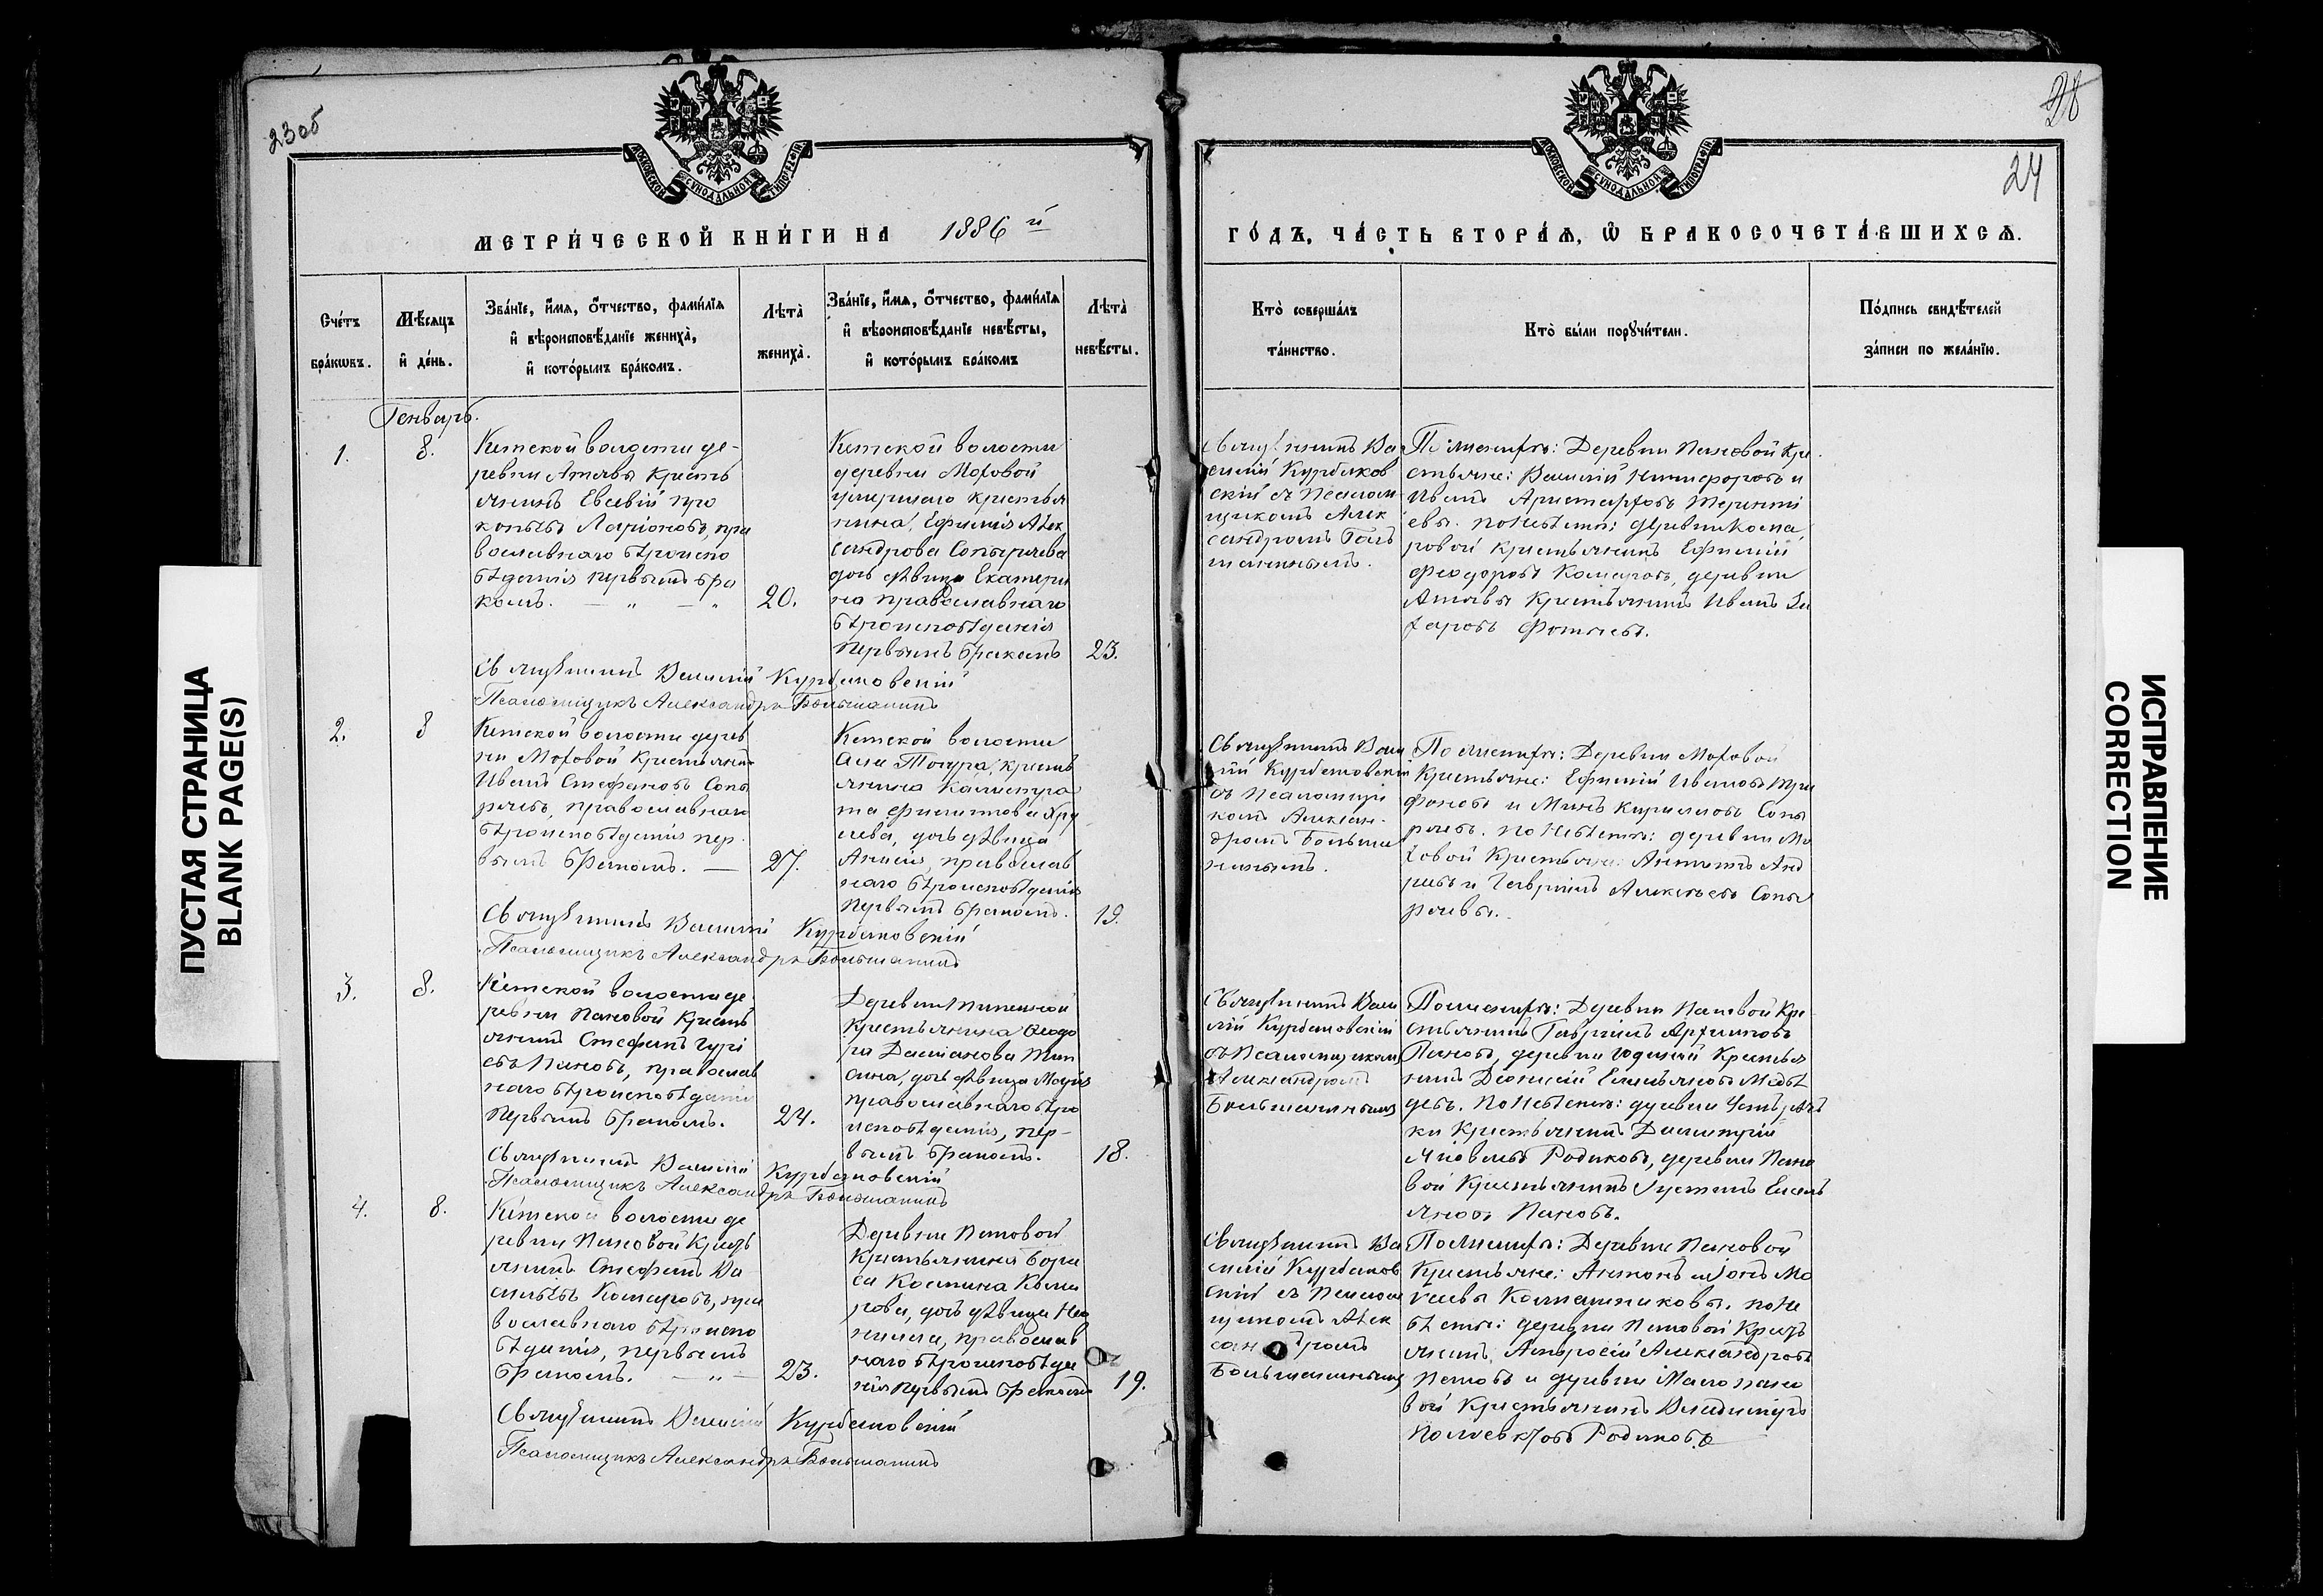 23об
28
24
МОСКОВСКОЙ СѴНОДАЛЬНОЙ ТИПОГРАФІИ
МОСКОВСКОЙ СѴНОДАЛЬНОЙ ТИПОГРАФІИ
МЕТРИ́ЧЕСКОЙ КНИ́ГИ НА 1886 й
ГО́ДЪ, ЧА́СТЬ ВТОРА́Ѧ, Ѽ БРАКОСОЧЕТА́ВШИХСѦ.
Сче́тъ
бра́кѡвъ.
Мѣ́сяцъ
и҆ де́нь.
Зва́нїе, и҆́мя, ѻ҆́тчество, фами́лїя
и҆ вѣроисповѣ́данїе жениха̀,
и҆ кото́рымъ бра́комъ.
Лѣта̀
жениха̀.
Зва́нїе, и҆́мя, ѻ҆́тчество, фами́лїя
и҆ вѣроисповѣ́данїе невѣ́сты,
и҆ кото́рымъ бра́комъ
Лѣта̀
невѣ́сты.
Кто̀ соверша́лъ
та́инство.
Кто̀ бы́ли порꙋчи́тели.
По́дпись свидѣ́телей
за́писи по жела́нїю.
Генварь.
1.
8.
Кетской волости де-
ревни Атяевы кресть
янинъ Евсевій Про
копьевъ Ларіоновъ, пра
вославнаго вѣроиспо
вѣданія первымъ бра
комъ. — „ — „
20.
Кетской волости
деревни Моховой
умершаго крестья
нина, Ефимія Алек
сандрова Сопырева
дочь дѣвица Екатери
на православнаго
вѣроисповѣданія
первымъ бракомъ
23.
Священникъ Ва
силій Курбаков
скій съ Псалом
щикомъ Алек
сандромъ Боль
шанинымъ.
По женихѣ: Деревни Пановой кре
стьяне: Василій Никифоровъ и
Иванъ Аристарховъ Терентi
евы. по невѣстѣ: деревни Кома
ровой крестьянинъ Ефимій
Феодоровъ Комаровъ, деревни
крестьянинъ Иванъ За
харовъ
Священникъ Василій Курбаковскій
Псаломщикъ Александръ Большанинъ
2.
8
Кетской волости дерев
ни Моховой крестьянинъ
Иванъ Стефановъ Сопы
ревъ, православнаго
вѣроисповѣданія пер
вымъ бракомъ. —
27.
Кетской волости
села Тогура, кресть
янина Калистра
та Филиппова
дочь дѣвица
Анисія, православ
наго вѣроисповѣданія
первымъ бракомъ.
19.
Священникъ Васи
лій Курбаковскій
съ Псаломщи
комъ Алексан
дромъ Больша
нинымъ.
По женихѣ: Деревни Моховой
крестьяне: Ефимій Ивановъ Три
фоновъ и Минъ Кириловъ Сопы
ревъ. по невѣстѣ: деревни Мо
ховой крестьяне: Антипъ Анд
реевъ и Гавріилъ Алексѣевъ Сопы
ревы.
Священникъ Василій Курбаковскій
Псаломщикъ Александръ Большанинъ
3.
8.
Кетской волости де
ревни Пановой кресть
янинъ Стефанъ Гурі
евъ Пановъ, православ
наго вѣроисповѣданія
первымъ бракомъ.
24.
Деревни
крестьянина Ѳеодо
ра
дочь дѣвица Марія
православнаго вѣро
исповѣданія, пер-
вымъ бракомъ.
18.
Священникъ Васи
лій Курбаковскій
съ Псаломщикомъ
Александромъ
Большанинымъ
По женихѣ: Деревни Пановой кре
стьянинъ Гавріилъ Архиповъ
Пановъ, деревни крестья
нинъ Діонисій Емельяновъ Медвѣ
девъ. По невѣстѣ: деревни
ки крестьянинъ Димитрій
Родиковъ, деревни Пано
вой крестьянинъ Іустинъ Емель
яновъ Пановъ.
Священникъ Василій Курбаковскій
Псаломщикъ Александръ Большанинъ
4.
8.
Кетской волости де
ревни Пановой кресть
янинъ Стефанъ Ва
сильевъ Комаровъ, пра
вославнаго вѣроиспо
вѣданія, первымъ
бракомъ. — „ —
23.
Деревни
крестьянина Бори
са Костина Кома
рова, дочь дѣвица Нео
нилла, православ
наго вѣроисповѣда
нія первымъ бракомъ
19.
Священникъ Ва
силій Курбаков
скій съ Псалом
щикомъ Алек
сандромъ
Большанинымъ
По женихѣ: Деревни Пановой
крестьяне: Антонъ и Іонъ Мо
Колпашниковы. по не
вѣстѣ: деревни кресть
янинъ Амвросій Александровъ
и деревни Малопано
вой крестьянинъ Владиміръ
Полиевктовъ Родиковъ.
Священникъ Василій Курбаковскій
Псаломщикъ Александръ Большанинъ
ПУСТАЯ СТРАНИЦА
BLANK PAGE(S)
ИСПРАВЛЕНИЕ
CORRECTION